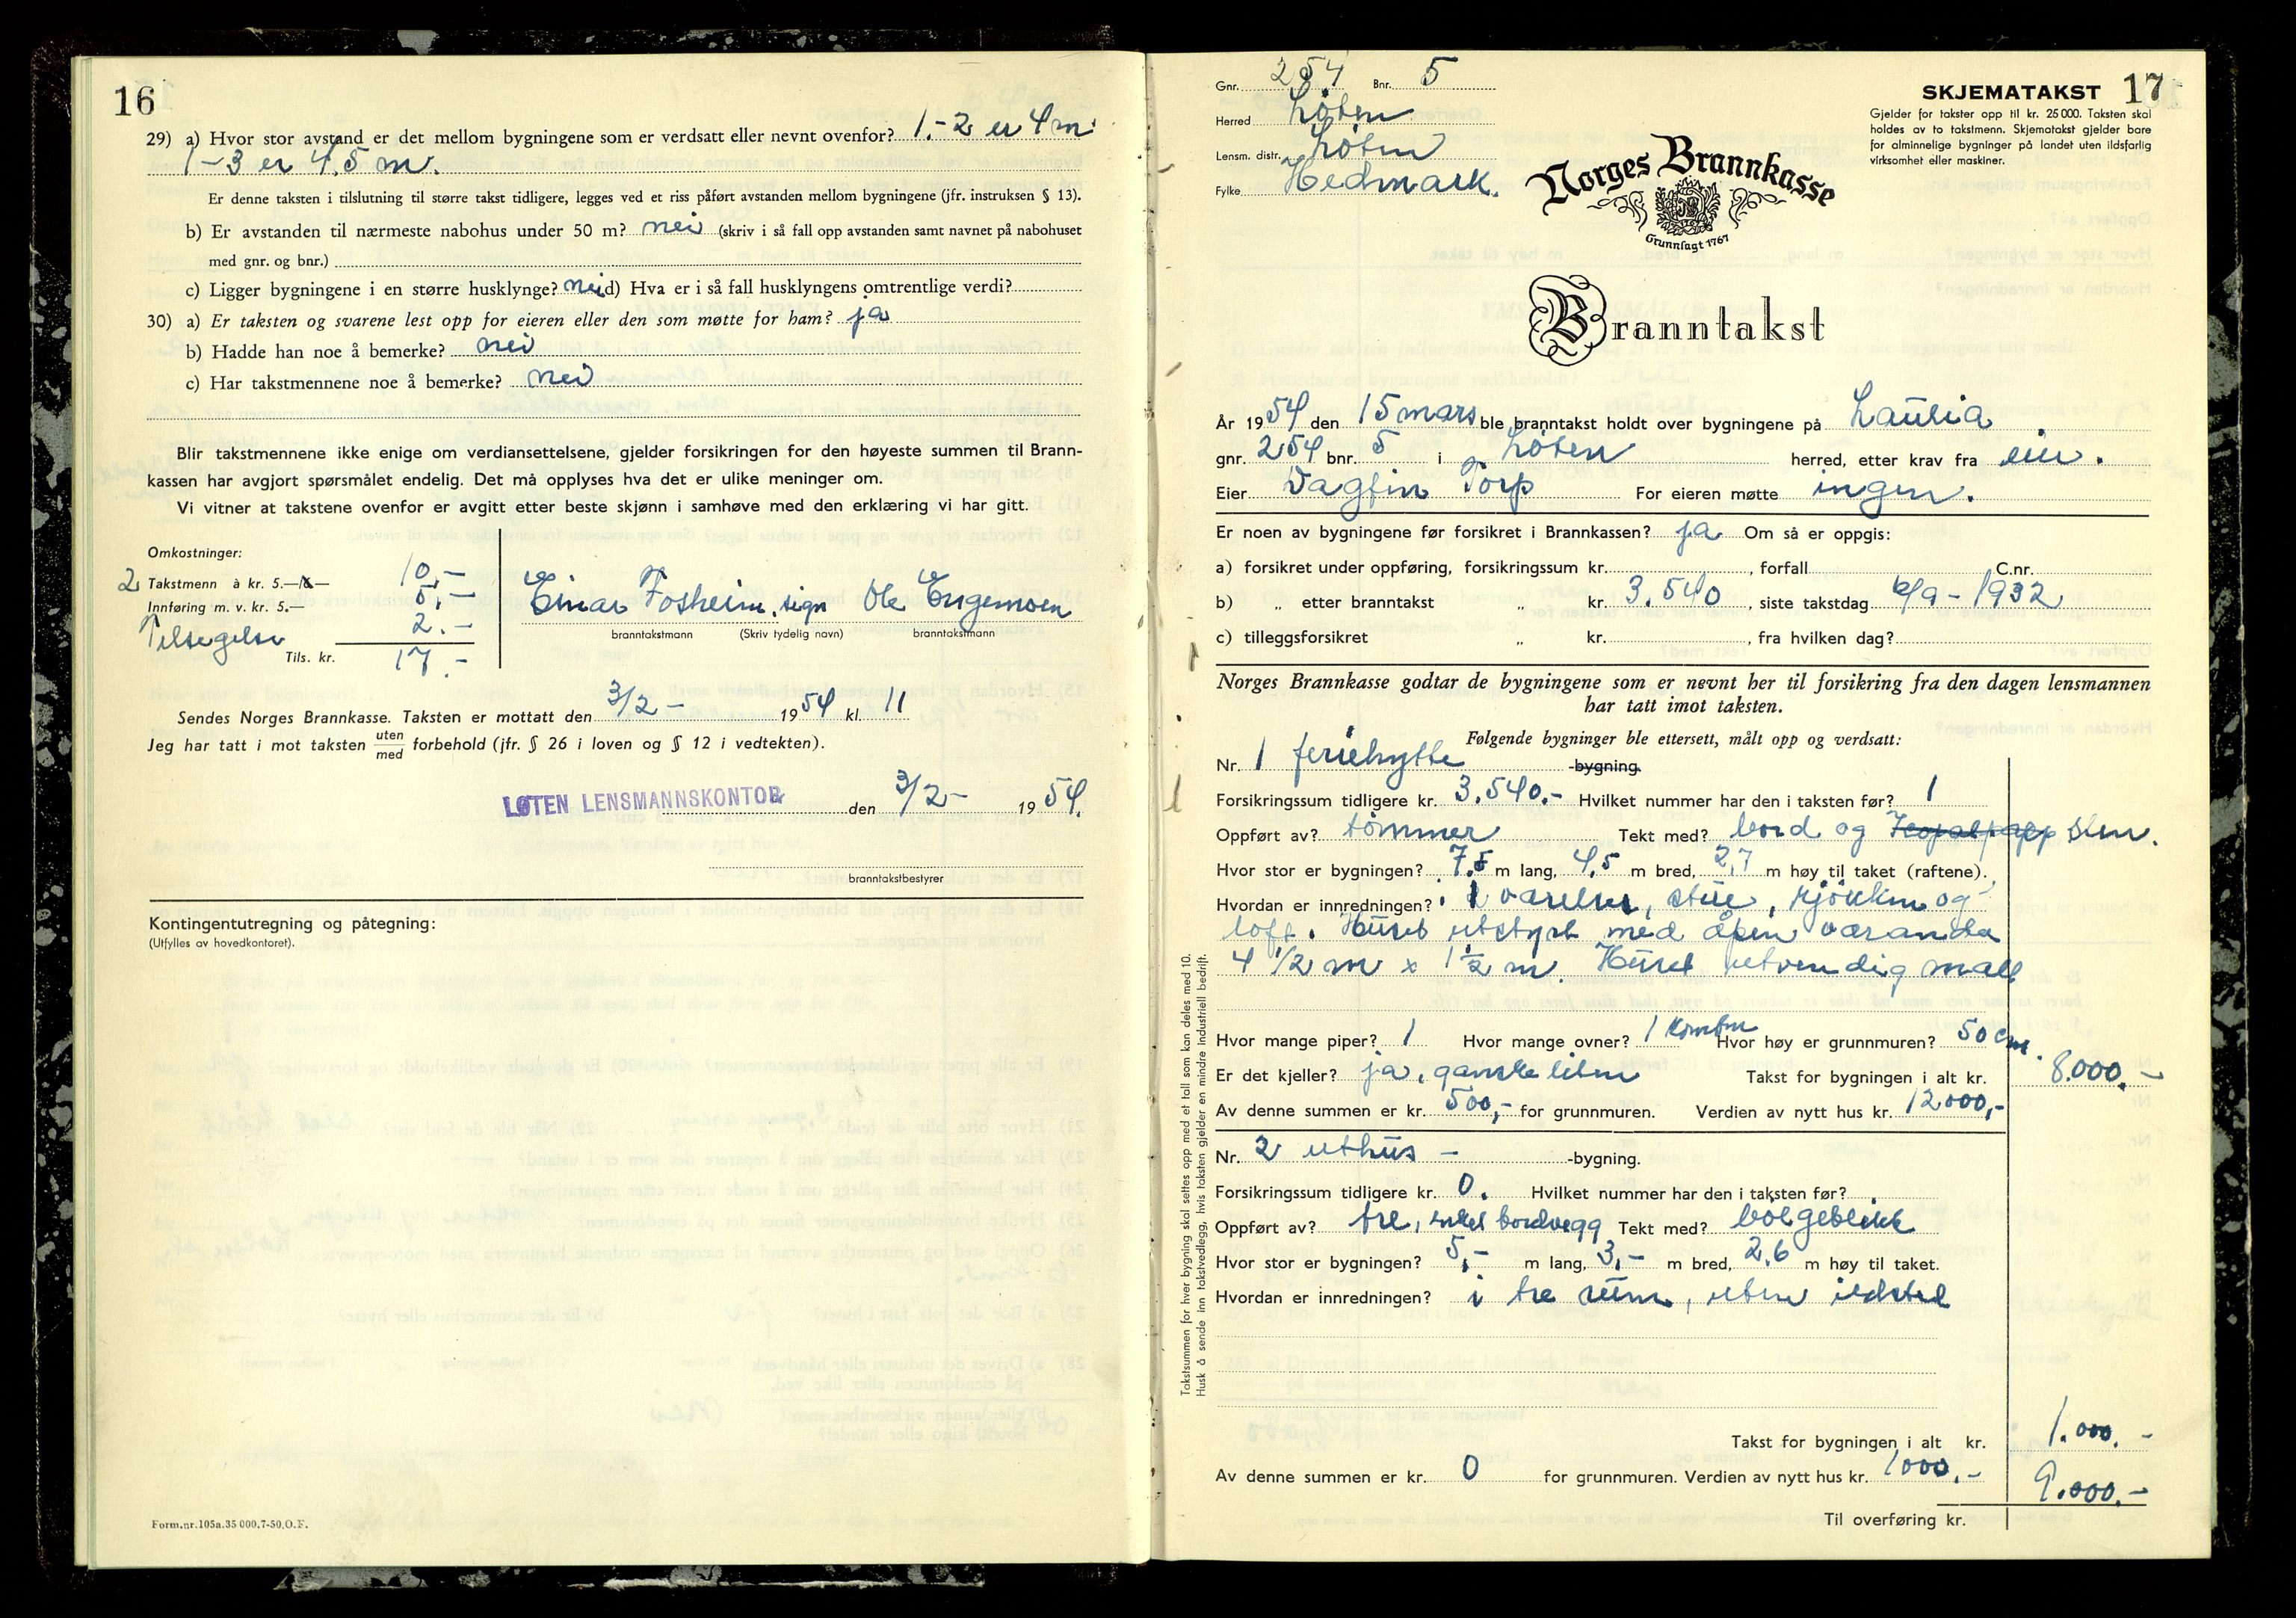 16
29) a) Hvor stor avstand er det mellom bygningene som er verdsatt eller nevnt ovenfor? 1.-2 er 4 m.
1-3 er 4,5 m.
Er denne taksten i tilslutning til større takst tidligere, legges ved et riss påført avstanden mellom bygningene (jfr. instruksen § 13).
b) Er avstanden til nærmeste nabohus under 50 m? nei (skriv i så fall opp avstanden samt navnet på nabohuset
med gnr. og bnr.)
c) Ligger bygningene i en større husklynge? nei d) Hva er i så fall husklyngens omtrentlige verdi?
30) a) Er taksten og svarene lest opp for eieren eller den som møtte for ham? ja
b) Hadde han noe å bemerke? nei
c) Har takstmennene noe å bemerke? nei
Blir takstmennene ikke enige om verdiansettelsene, gjelder forsikringen for den høyeste summen til Brann-
kassen har avgjort spørsmålet endelig. Det må opplyses hva det er ulike meninger om.
Vi vitner at takstene ovenfor er avgitt etter beste skjønn i samhøve med den erklæring vi har gitt.
Omkostninger:
2 Takstmenn à kr. 5.— 10,-
Innføring m. v. kr. 5.— 5,-
Tilsigelse 2.-
Tils. kr. 17.-
Einar Fosheim. sign Ole Engemoen
branntakstmann (Skriv tydelig navn) branntakstmann
Sendes Norges Brannkasse. Taksten er mottatt den 3/2 - 1954 kl. 11
Jeg har tatt i mot taksten uten/med forbehold (jfr. § 26 i loven og § 12 i vedtekten).
LØTEN LENSMANNSKONTOR den 3/2- 1954.
branntakstbestyrer
Kontingentutregning og påtegning:
(Utfylles av hovedkontoret).
Form.nr.105a.35 000.7-50.O.F.
Gnr. 254 Bnr. 5
Herred Löten
Lensm. distr. Löten
Fylke Hedmark.
SKJEMATAKST 17
Gjelder for takster opp til kr. 25 000. Taksten skal
holdes av to takstmenn. Skjematakst gjelder bare
for alminnelige bygninger på landet uten ildsfarlig
virksomhet eller maskiner.
Norges Brannkasse
Grunnlagt 1767
Branntakst
År 1954 den 15 mars ble branntakst holdt over bygningene på Laulia
gnr. 254 bnr. 5 i Löten herred, etter krav fra eier.
Eier Dagfin Torp For eieren møtte ingen.
Er noen av bygningene før forsikret i Brannkassen? ja Om så er oppgis:
a) forsikret under oppføring, forsikringssum kr. , forfall C.nr.
b) „ etter branntakst „ kr. 3.540 , siste takstdag 6/9 - 1932
c) tilleggsforsikret „ kr. , fra hvilken dag?
Norges Brannkasse godtar de bygningene som er nevnt her til forsikring fra den dagen lensmannen
har tatt imot taksten.
Følgende bygninger ble ettersett, målt opp og verdsatt:
Nr. 1 feriehytte -bygning.
Forsikringssum tidligere kr. 3.540.- Hvilket nummer har den i taksten før? 1
Oppført av? tömmer Tekt med? bord og
Hvor stor er bygningen? 7.5 m lang, 4,5 m bred, 2,7 m høy til taket (raftene).
Hvordan er innredningen? 1 værelse, stue, kjökken og
loft. Huset utstyrt med åpen veranda
4 1/2 m x 1 1/2 m. Huset utvendig malt
Hvor mange piper? 1 Hvor mange ovner? 1 komfur Hvor høy er grunnmuren? 50 cm.
Er det kjeller? ja, ganske liten Takst for bygningen i alt kr. 8.000.-
Av denne summen er kr. 500,- for grunnmuren. Verdien av nytt hus kr. 12000,-
Nr. 2 uthus - -bygning.
Forsikringssum tidligere kr. 0. Hvilket nummer har den i taksten før?
Oppført av? tre, enkel bordvegg Tekt med? bölgeblekk
Hvor stor er bygningen? 5,- m lang, 3,- m bred, 2,6 m høy til taket.
Hvordan er innredningen? i tre rum, uten ildsted
Takst for bygningen i alt kr. 1.000.-
Av denne summen er kr. 0 for grunnmuren. Verdien av nytt hus kr. 1000.-
9.000.-
Til overføring kr.
Takstsummen for hver bygning skal settes opp med et tall som kan deles med 10.
Husk å sende inn takstvedlegg, hvis taksten gjelder en mindre industriell bedrift.